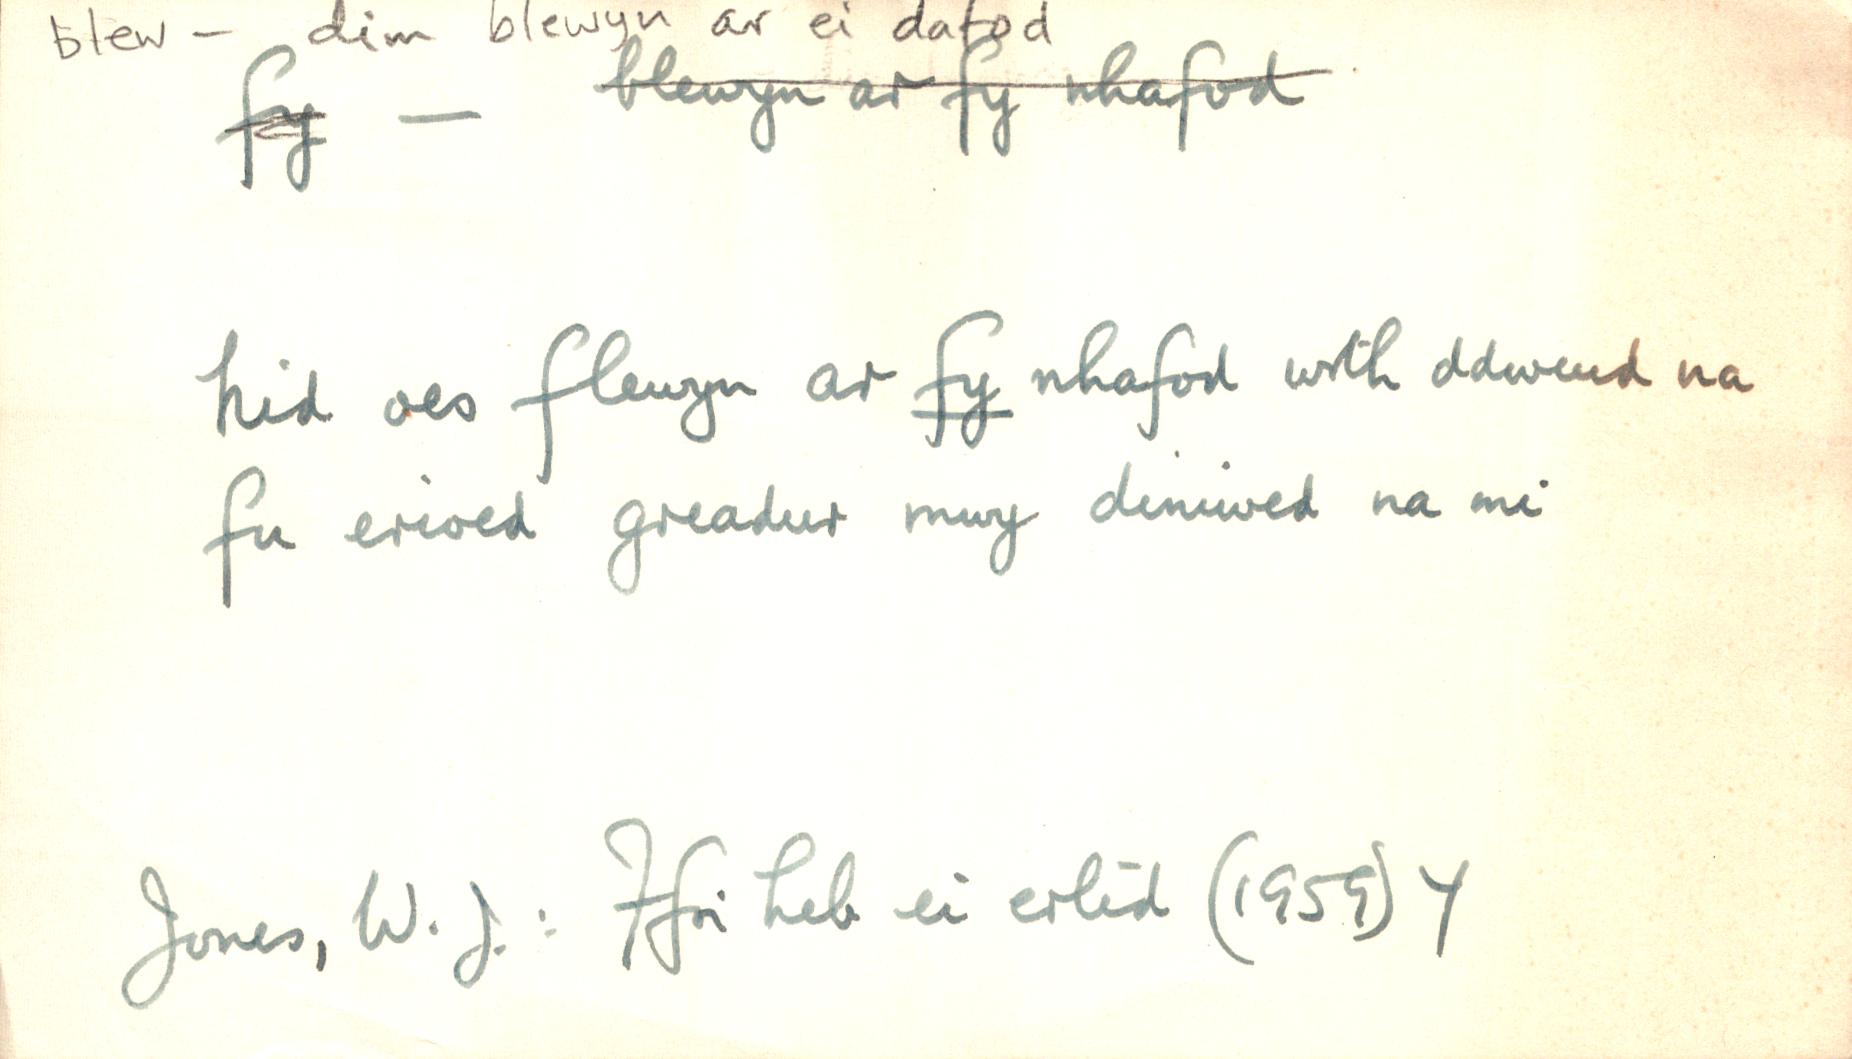 blew - dim blewyn ar ei dafod
fy — blewyn ar fy nhafod
Nid oes flewyn ar fy nhafod wrth ddweud na
fu erioed greadur mwy diniwed na mi
Jones, W. J.: Ffoi heb ei erlid (1959) Y